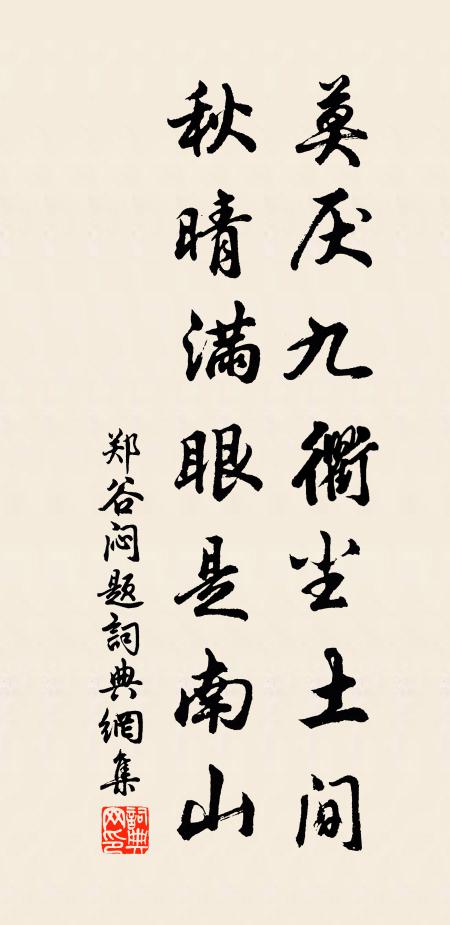 莫厌九衢尘土间
秋晴满眼是南山
郑谷闷题詞典網集
詞典网印